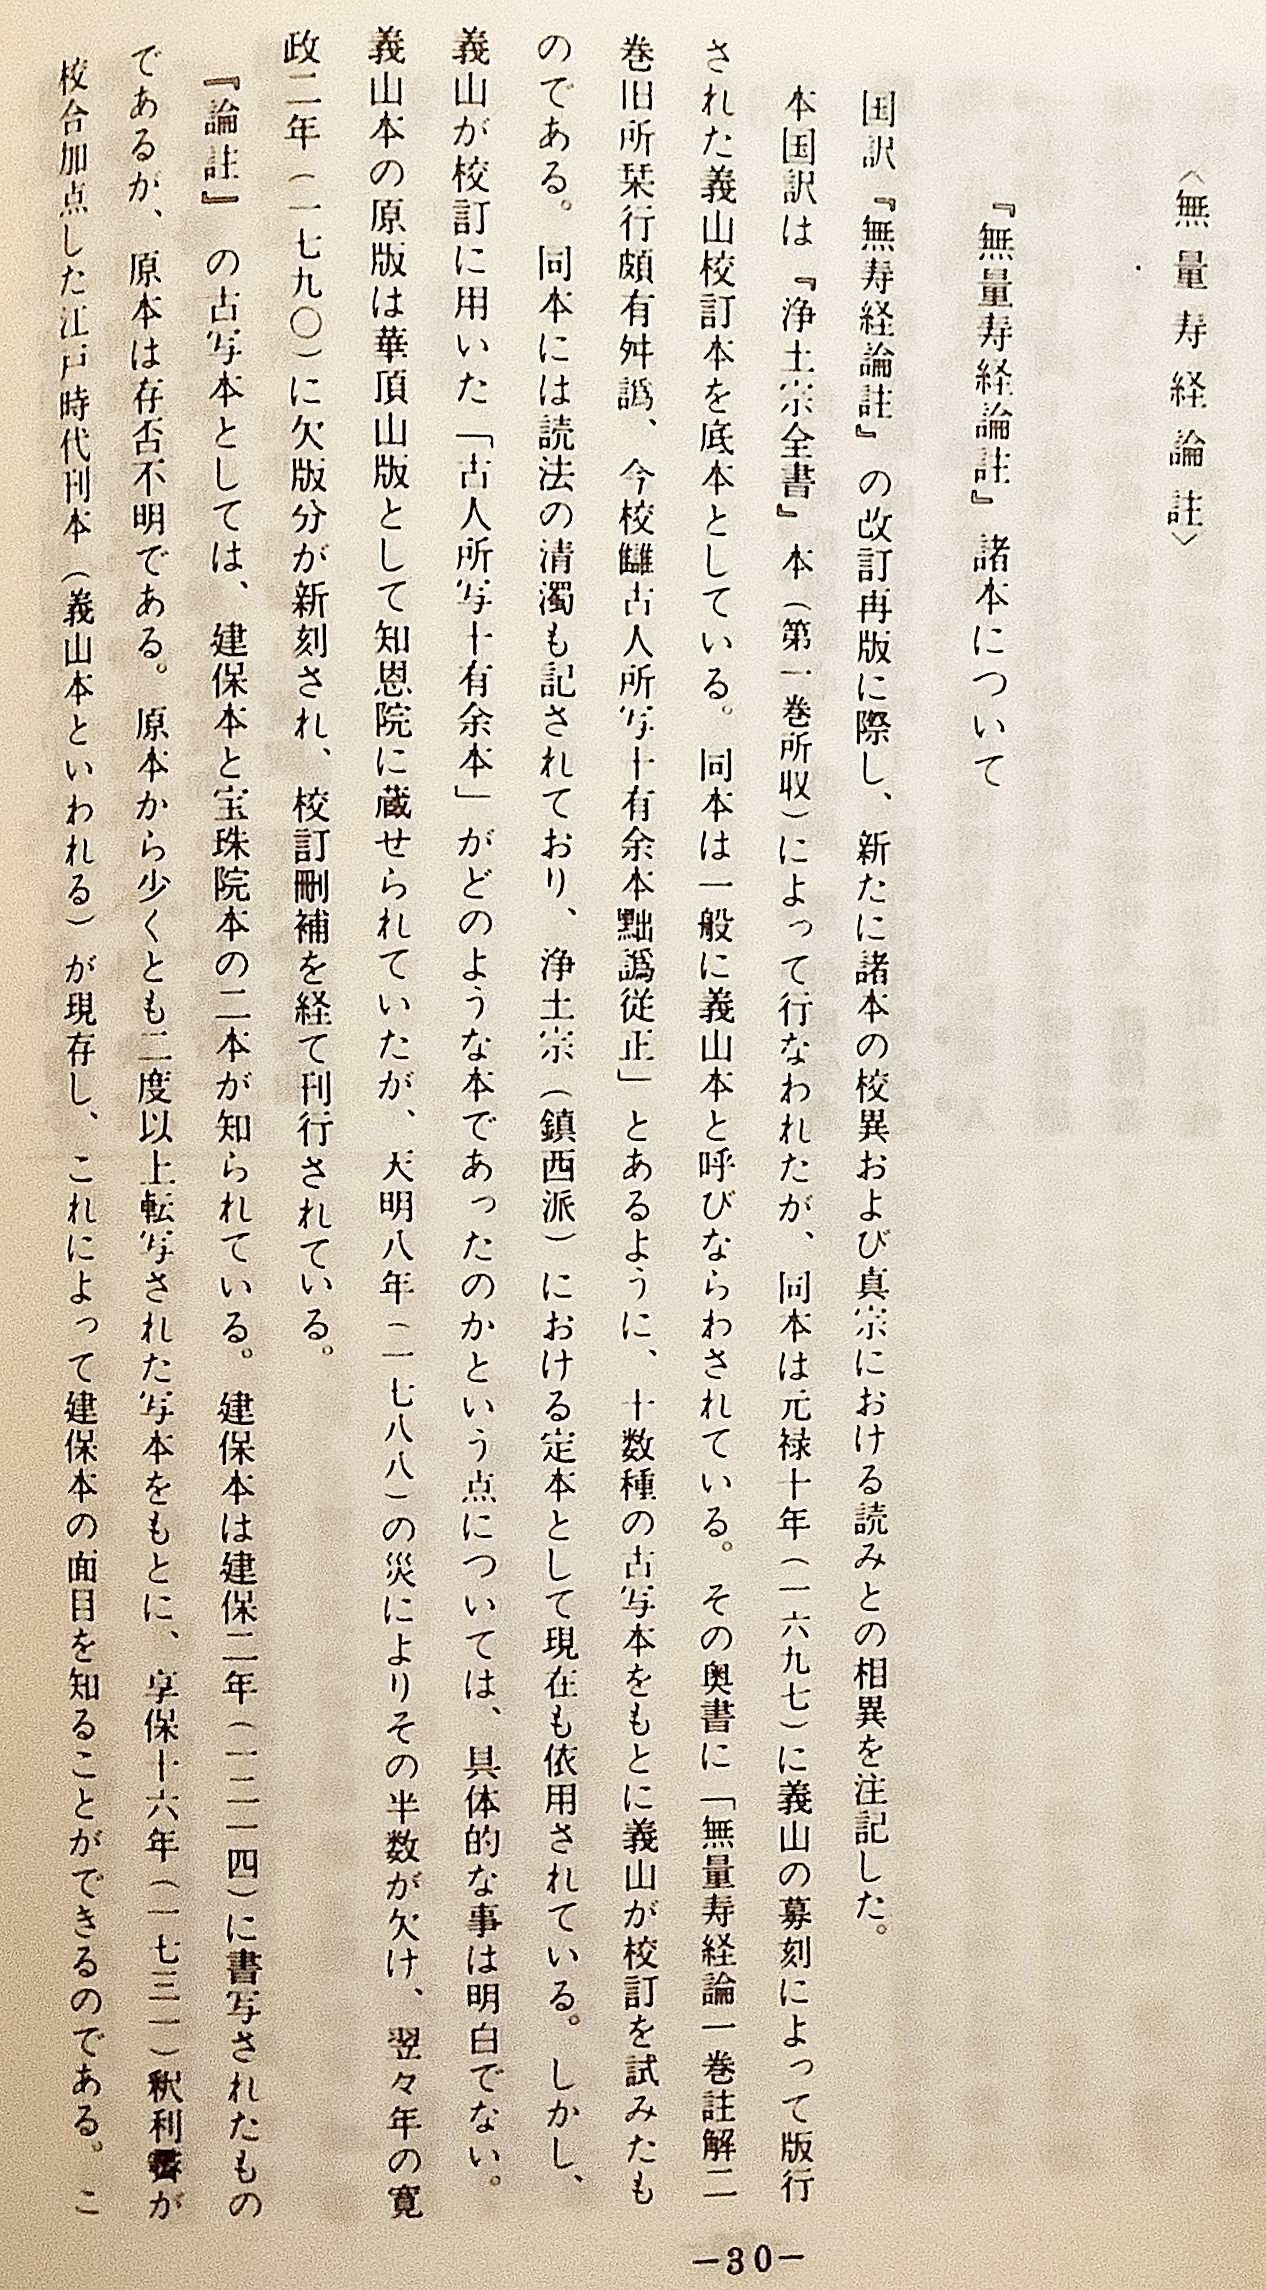 〈無量寿経論註〉
『無量寿経論註』諸本について
国訳『無寿経論註』の改訂再版に際し、新たに諸本の校異および真宗における読みとの相異を注記した。
本国訳は『浄土宗全書』本（第一巻所収）によって行なわれたが、同本は元禄十年（一六九七）に義山の募刻によって版行
された義山校訂本を底本としている。同本は一般に義山本と呼びならわされている。その奥書に「無量寿経論一巻註解二
巻旧所栞行頗有舛譌、今校讎古人所写十有余本黜譌従正」とあるように、十数種の古写本をもとに義山が校訂を試みたも
のである。同本には読法の清濁も記されており、浄土宗（鎮西派）における定本として現在も依用されている。しかし、
義山が校訂に用いた「古人所写十有余本」がどのような本であったのかという点については、具体的な事は明白でない。
義山本の原版は華頂山版として知恩院に蔵せられていたが、天明八年（一七八八）の災によりその半数が欠け、翌々年の寛
政二年（一七九〇）に欠版分が新刻され、校訂刪補を経て刊行されている。
『論註』の古写本としては、建保本と宝珠院本の二本が知られている。建保本は建保二年（一二一四）に書写されたもの
であるが、原本は存否不明である。原本から少くとも二度以上転写された写本をもとに、享保十六年（一七三一）釈利が
校合加点した江戸時代刊本（義山本といわれる）が現存し、これによって建保本の面目を知ることができるのである。こ
—30—